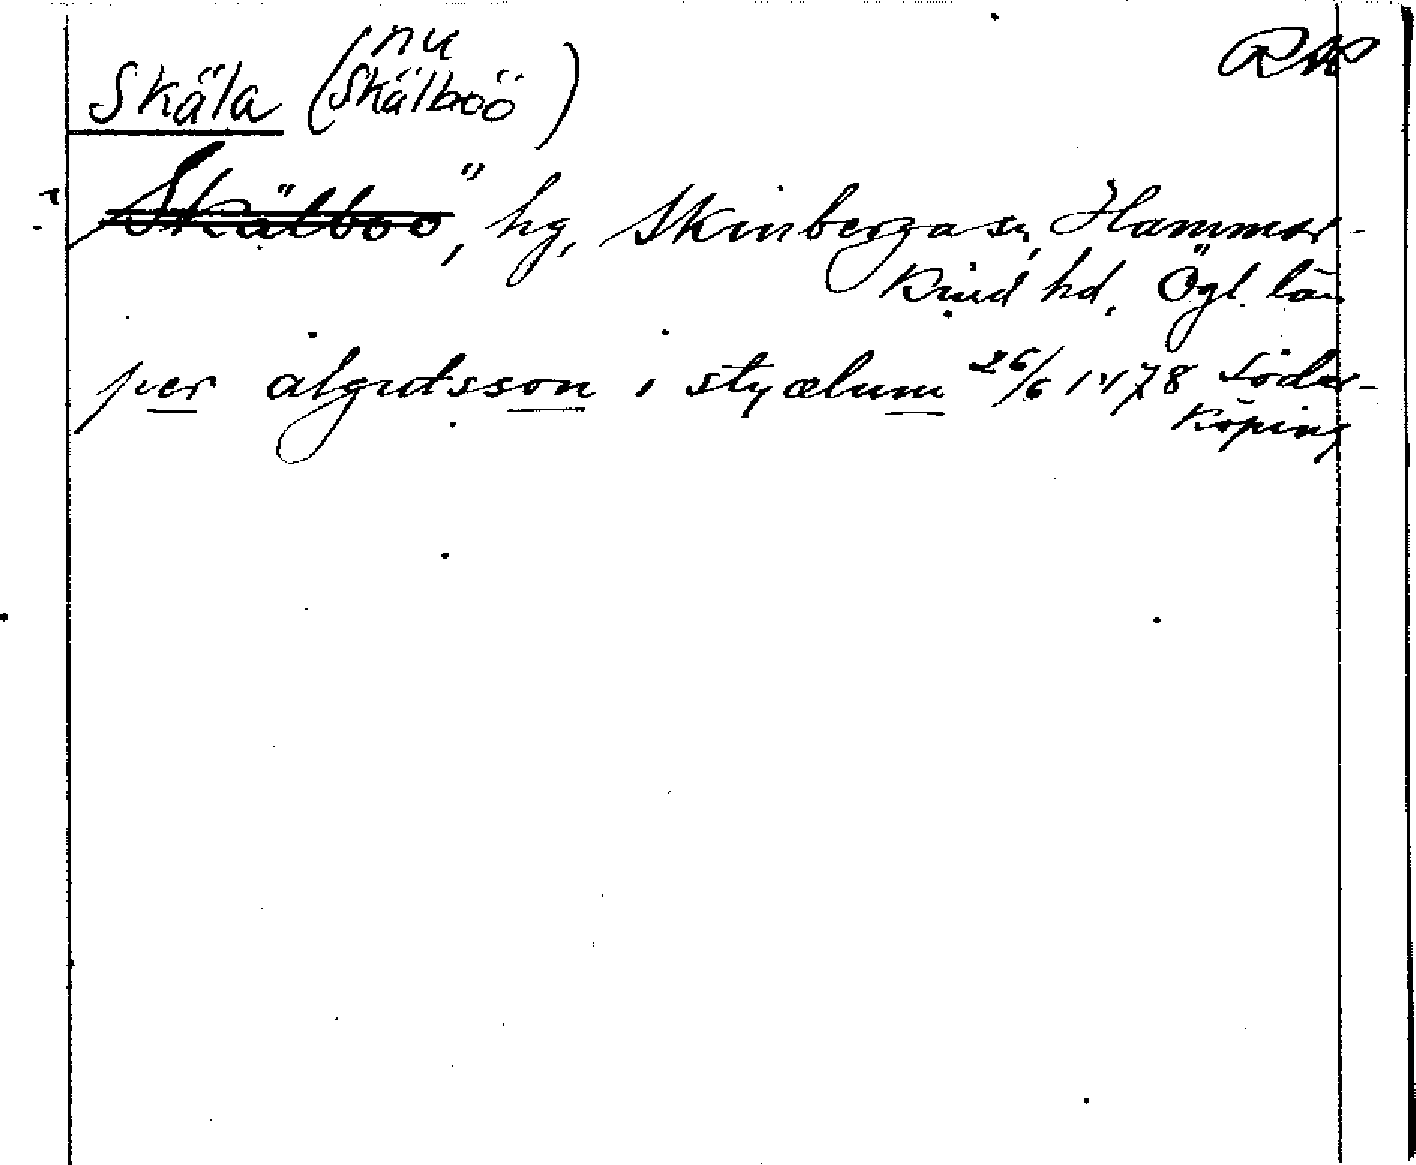 Skäla (nu Skälboö)
RAP
Skälboö, hg, Skinberga sn, Hammar-
kind hd, Ögl. län
per algutsson i styælum 26/6 1478 Söder-
köping